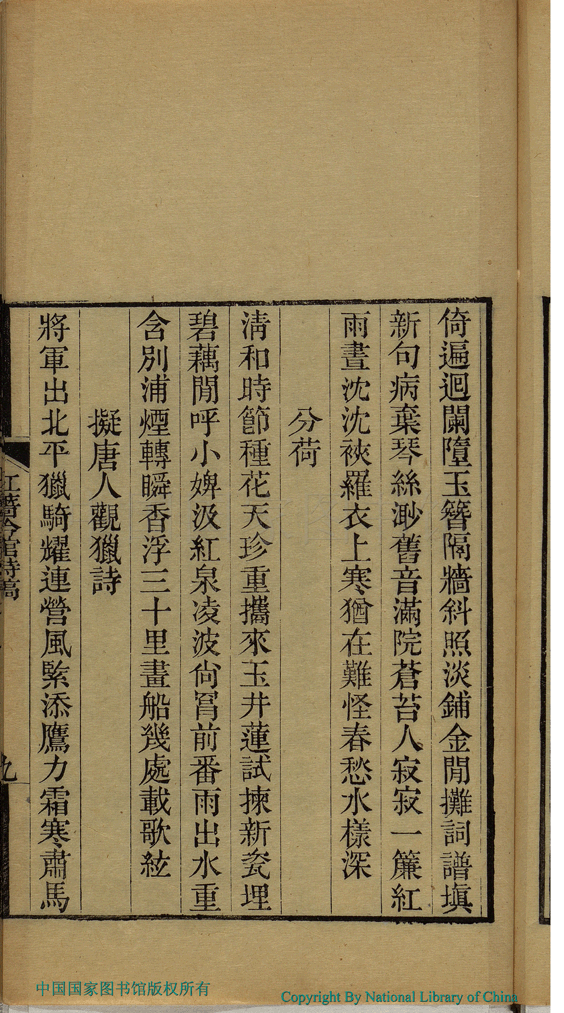 倚遍迴闌墮玉簪隔牆斜照淡鋪金閒攤詞譜塡
新句病棄琴絲渺舊音滿院蒼苔人寂寂一簾紅
雨晝沈沈裌羅衣上寒猶在難怪春愁水樣深
分荷
淸和時節種花天珍重攜來玉井蓮試揀新瓷埋
碧藕閒呼小婢汲紅泉凌波尙罥前番雨出水重
含別浦煙轉瞬香浮三十里畫船幾處載歌絃
擬唐人觀獵詩
將軍出北平獵騎耀連營風緊添鷹力霜寒肅馬
九
中国国家图书馆版权所有
Copyright By National Library of China